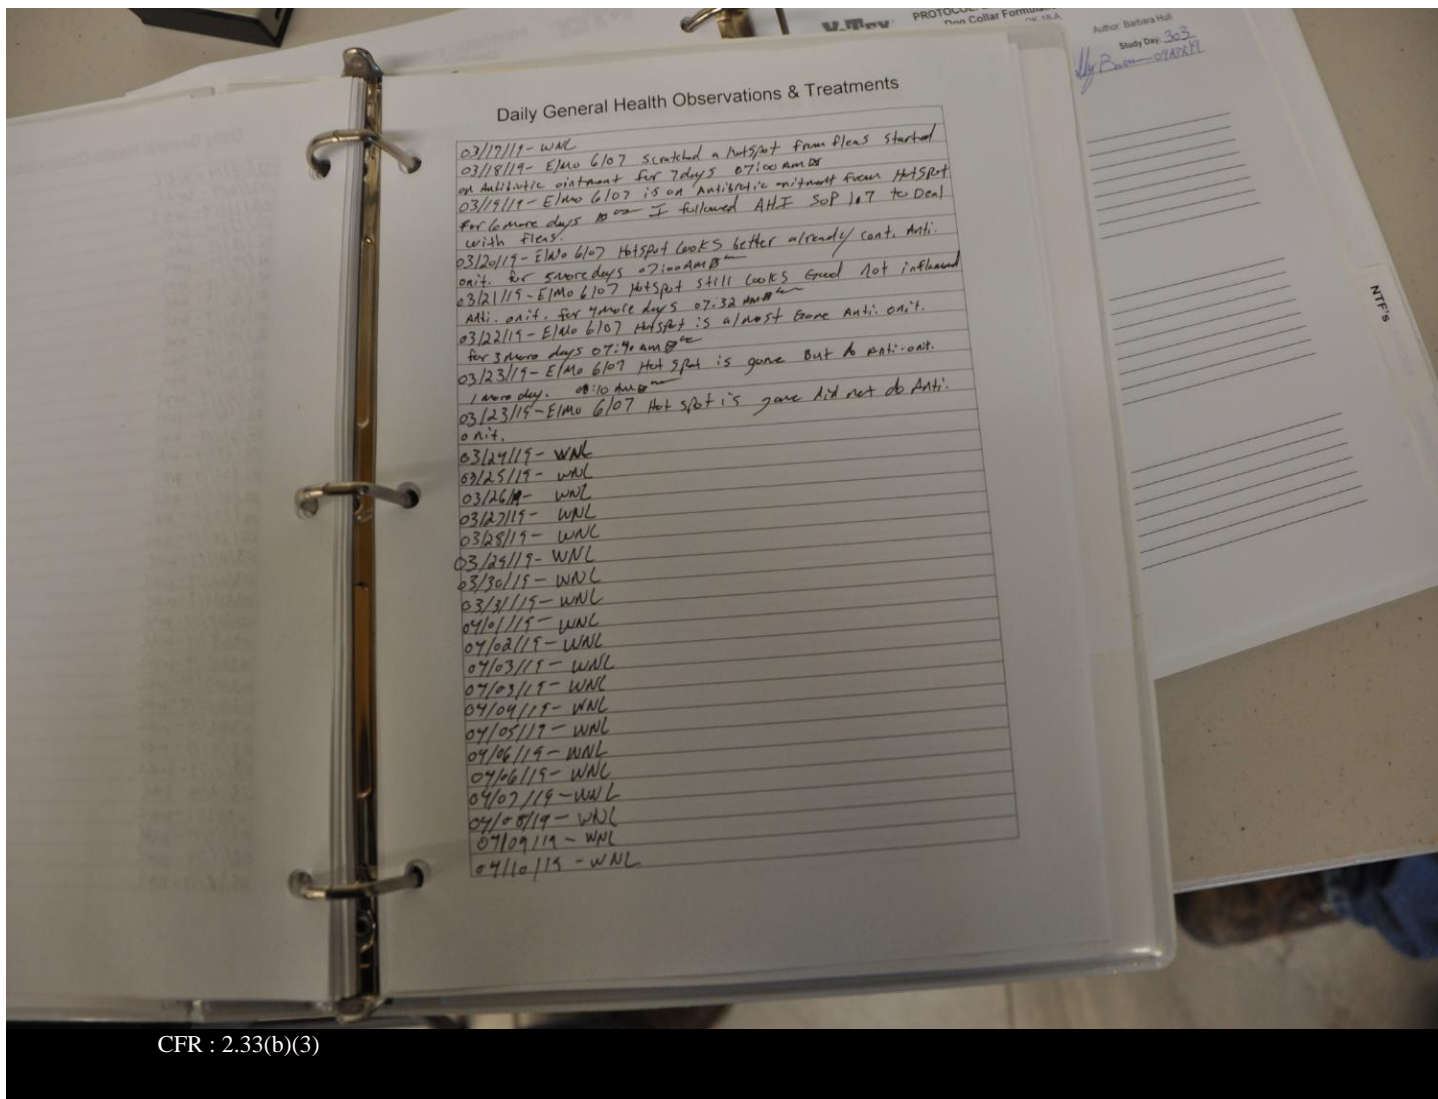 PROTOCOL
Dog Collar Formulation
Author: Barbara Hull
Study Day: 303
09APR19
NTF's
Daily General Health Observations & Treatments
03/17/19- WNL
03/18/19- Elmo 6107 Scratched a hotspot from fleas started
on Antibiotic ointment for 7days 07:00 AM
03/19/19- Elmo 6107 is on Antibiotic onitment from HotSpot
For 6 more days I followed AHI SOP 1.7 to Deal
with fleas.
03/20/19- Elmo 6107 Hotspot Looks better already cont. Anti.
onit. for 5more days 07:00AM
03/21/19- Elmo 6107 Hotspot still Looks Good Not inflamed
Anti. onit. for 4more days 07:32 AM
03/22/19- Elmo 6107 Hotspot is almost Gone Anti. onit.
for 3 more days 07:40 AM
03/23/19- Elmo 6107 Hot spot is gone But do Anti-onit.
1 more day. 08:10 AM
03/23/19- Elmo 6107 Hot spot is gone did not do Anti.
onit.
03/24/19- WNL
03/25/19- WNL
03/26/19- WNL
03/27/19- WNL
03/28/19- WNL
03/29/19- WNL
03/30/19- WNL
03/31/19- WNL
04/01/19- WNL
04/02/19- WNL
04/03/19- WNL
04/03/19- WNL
04/04/19- WNL
04/05/19- WNL
04/06/19- WNL
04/06/19- WNL
04/07/19- WNL
04/08/19- WNL
04/09/19- WNL
04/10/19- WNL
CFR : 2.33(b)(3)